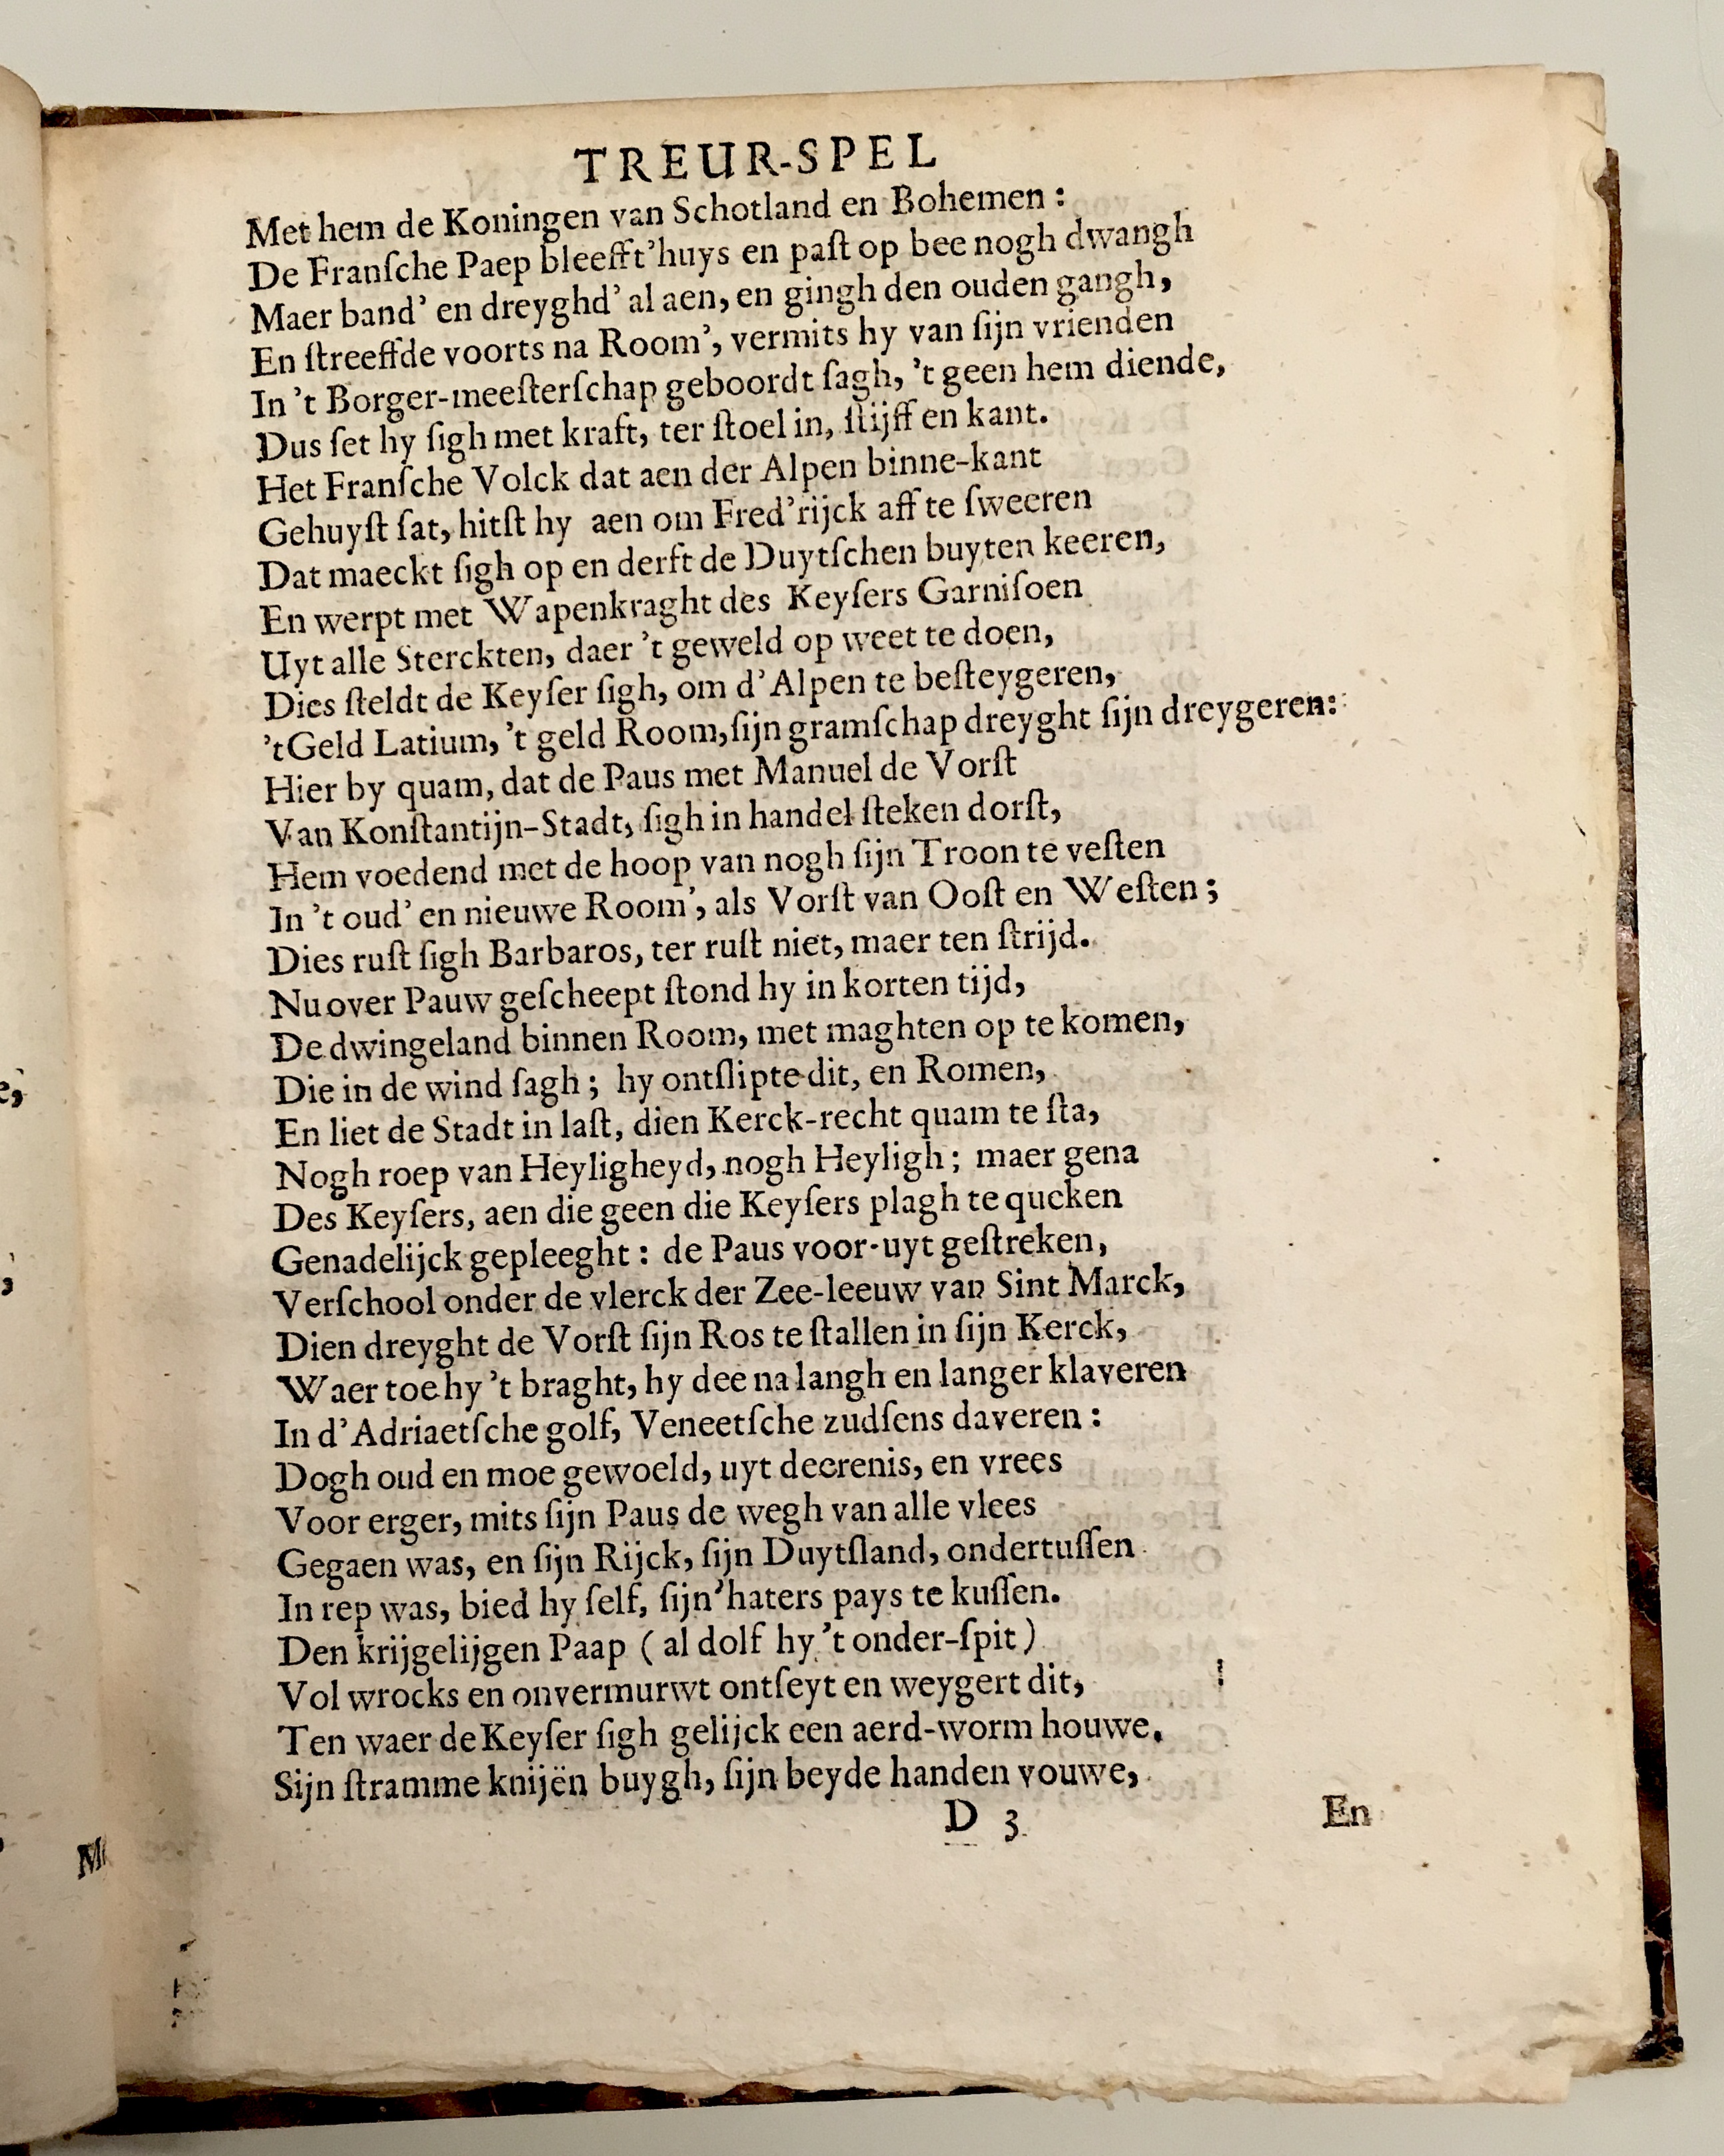 TREUR-SPEL
Met hem de Koningen van Schotland en Bohemen :
De Franſche Paep bleefft'huys en paſt op bee nogh dwangh
Maer band' en dreyghd' al aen, en gingh den ouden gangh,
En ſtreeffde voorts na Room', vermits hy van ſijn vrienden
In 't Borger-meeſterſchap geboordt ſagh, 't geen hem diende,
Dus ſet hy ſigh met kraft, ter ſtoel in, ſtijff en kant.
Het Franſche Volck dat aen der Alpen binne-kant
Gehuyſt ſat, hitſt hy aen om Fred'rijck aff te ſweeren
Dat maeckt ſigh op en derft de Duytſchen buyten keeren,
En werpt met Wapenkraght des Keyſers Garniſoen
Uyt alle Sterckten, daer 't geweld op weet te doen,
Dies ſteldt de Keyſer ſigh, om d'Alpen te beſteygeren,
't Geld Latium, 't geld Room, ſijn gramſchap dreyght ſijn dreygeren:
Hier by quam, dat de Paus met Manuel de Vorſt
Van Konſtantijn-Stadt, ſigh in handel ſteken dorſt,
Hem voedend met de hoop van nogh ſijn Troon te veſten
In 't oud' en nieuwe Room', als Vorſt van Ooſt en Weſten ;
Dies ruſt ſigh Barbaros, ter ruſt niet, maer ten ſtrijd.
Nu over Pauw geſcheept ſtond hy in korten tijd,
De dwingeland binnen Room, met maghten op te komen,
Die in de wind ſagh ; hy ontſlipte dit, en Romen,
En liet de Stadt in laſt, dien Kerck-recht quam te ſta,
Nogh roep van Heyligheyd, nogh Heyligh ; maer gena
Des Keyſers, aen die geen die Keyſers plagh te queken
Genadelijck gepleeght : de Paus voor-uyt geſtreken,
Verſchool onder de vlerck der Zee-leeuw van Sint Marck,
Dien dreyght de Vorſt ſijn Ros te ſtallen in ſijn Kerck,
Waer toe hy 't braght, hy dee na langh en langer klaveren
In d'Adriaetſche golf, Veneetſche zudſens daveren :
Dogh oud en moe gewoeld, uyt deerenis, en vrees
Voor erger, mits ſijn Paus de wegh van alle vlees
Gegaen was, en ſijn Rijck, ſijn Duytſland, ondertuſſen
In rep was, bied hy ſelf, ſijn'haters pays te kuſſen.
Den krijgelijgen Paap ( al dolf hy 't onder-ſpit )
Vol wrocks en onvermurwt ontſeyt en weygert dit,
Ten waer de Keyſer ſigh gelijck een aerd-worm houwe,
Sijn ſtramme knijën buygh, ſijn beyde handen vouwe,
D 3
En